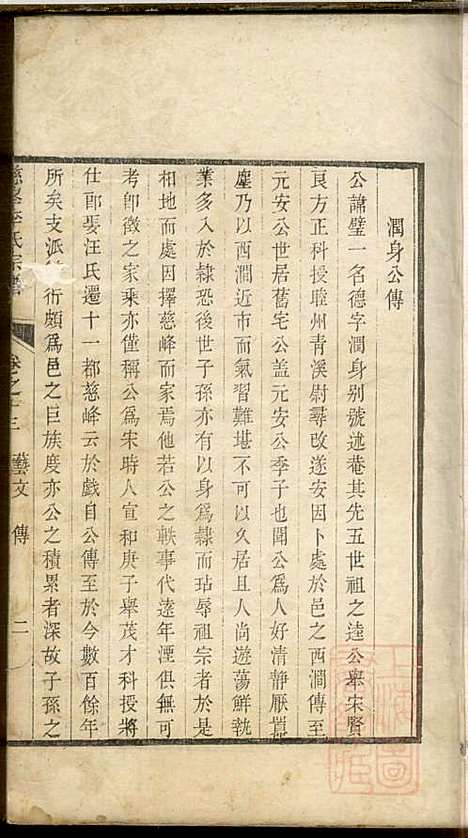 潤身公傳
公諱璧一名德字潤身别號述菴其先五世祖之逵公舉宋賢
良方正科授睦州青溪尉尋改遂安因卜處於邑之西澗傳至
元安公世居舊宅公盖元安公季子也聞公爲人好清静厭囂
塵乃以西澗近市而氣習難堪不可以久居且人尚遊蕩鮮執
業多入於隷恐後世子孫亦有以身爲隷而玷辱祖宗者於是
相地而處因擇慈峰而家焉他若公之軼事代遠年湮俱無可
考卽徵之家乘亦僅稱公爲宋時人宣和庚子舉茂才科授將
仕郎娶汪氏遷十一都慈峰云於戲自公傳至於今數百餘年
所矣支派衍頗爲邑之巨族度亦公之積累者深故子孫之
氏宗譜
卷之十三
藝文
傳
二
上海圖
書館藏